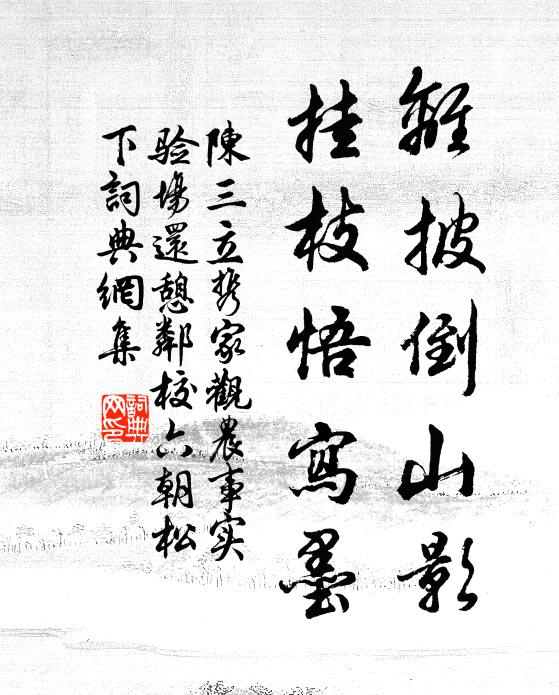 離披倒山影
挂枝悟寫墨
陳三立携家觀農事实
验場還憩鄰校六朝松
下詞典網集
詞典
网印